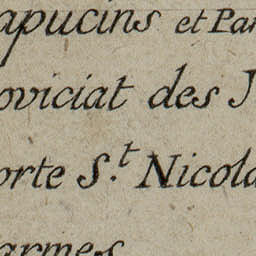 apucins et Par
oviciat des J
orte S.t Nicola
armes